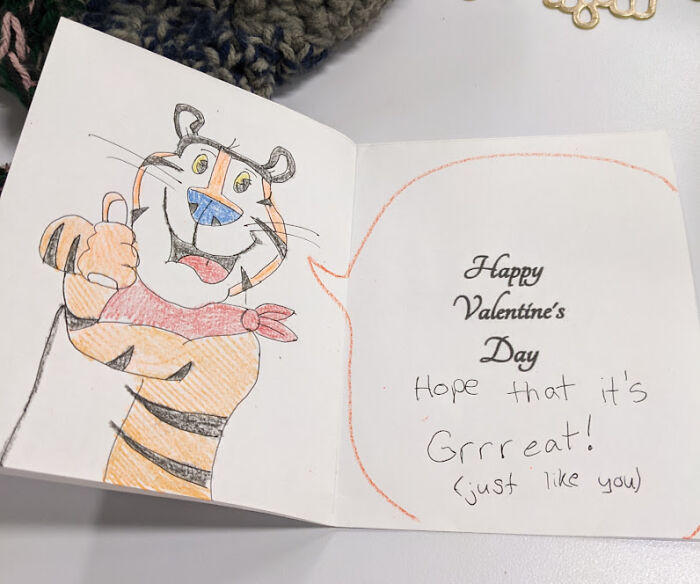 Happy
Valentine's
Day
Hope that it's
Grrreat!
(just like you)